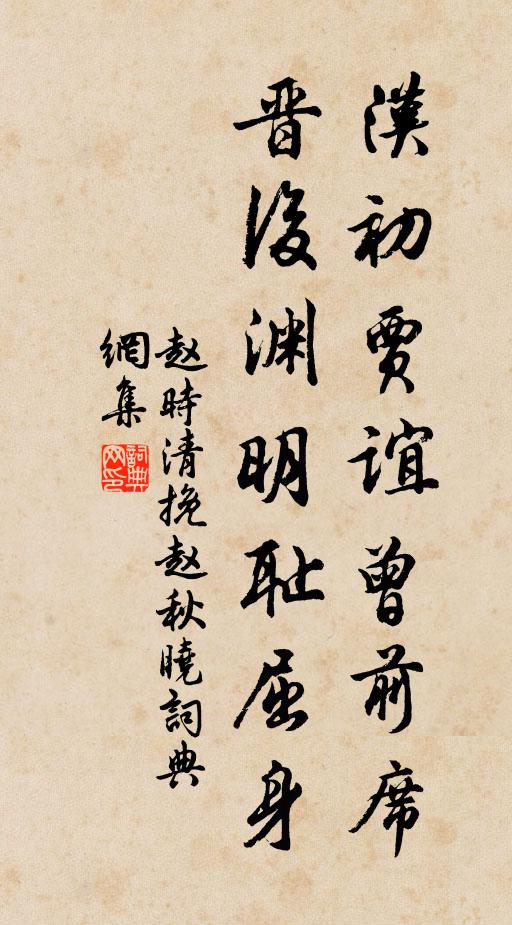 漢初賈誼曾前席
晋後渊明耻屈身
赵時清挽赵秋曉詞典
網集
詞典网印